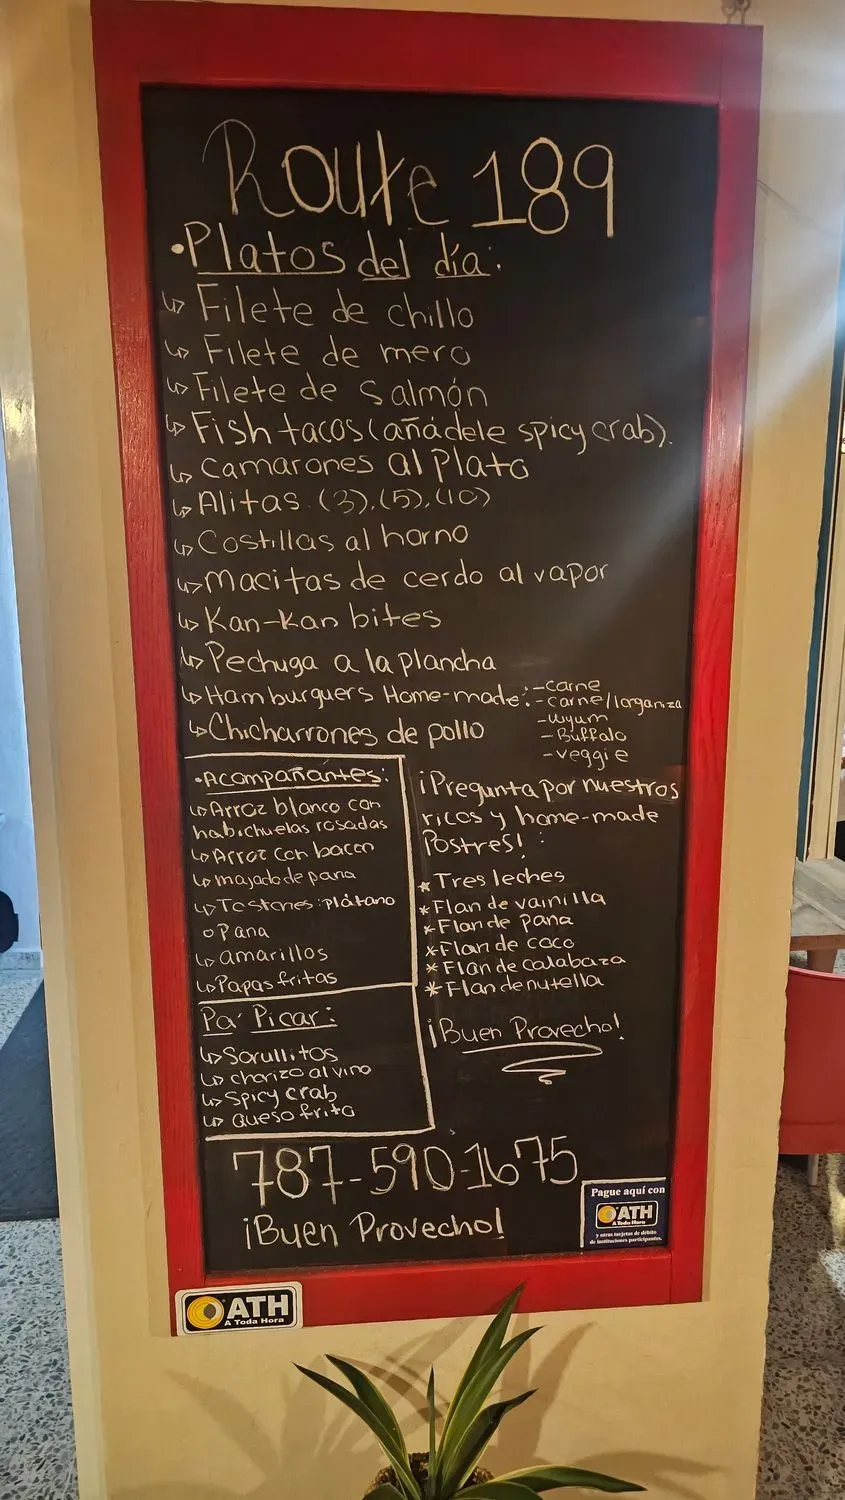 Route 189
•Platos del día:
↳ Filete de chillo
↳ Filete de mero
↳ Filete de salmón
↳ Fish tacos (añádele spicy crab).
↳ camarones al plato
↳ Alitas (3),(5),(10)
↳ Costillas al horno
↳ macitas de cerdo al vapor
↳ Kan-Kan bites
↳ Pechuga a la plancha
↳ Hamburguers Home-made:
-carne
-carne/longaniza
-wyum
-Buffalo
-veggie
↳ Chicharrones de pollo
•Acompañantes:
↳ Arroz blanco con
habichuelas rosadas
↳ Arroz con bacon
↳ majado de pana
↳ Tostones: plátano
o pana
↳ amarillos
↳ Papas fritas
Pa' Picar:
↳ Sorullitos
↳ chorizo al vino
↳ spicy crab
↳ queso frito
¡Pregunta por nuestros
ricos y home-made
Postres! :
* Tres leches
* Flan de vainilla
* Flan de pana
* Flan de coco
* Flan de calabaza
* Flan de nutella
¡Buen Provecho!
787-590-1675
¡Buen Provecho!
Pague aquí con
ATH
A Toda Hora
y otras tarjetas de débito
de instituciones participantes.
ATH
A Toda Hora